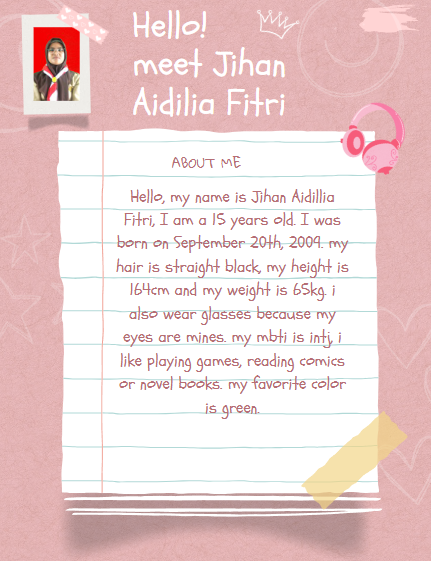 Hello!
meet Jihan
Aidilia Fitri
ABOUT ME
Hello, my name is Jihan Aidillia
Fitri, I am a 15 years old. I was
born on September 20th, 2009. my
hair is straight black, my height is
164cm and my weight is 65kg. i
also wear glasses because my
eyes are mines. my mbti is intj, i
like playing games, reading comics
or novel books. my favorite color
is green.